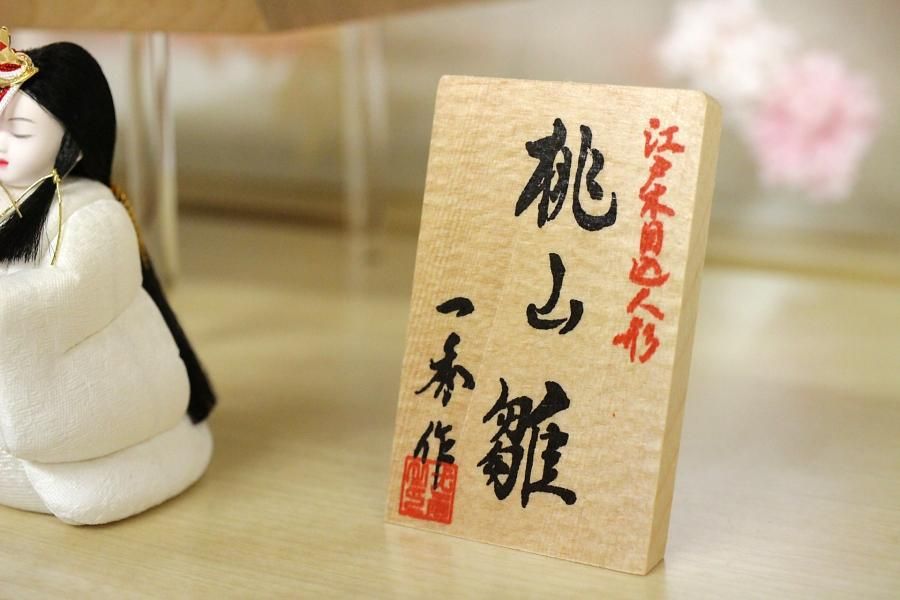 江戸木目込人形
桃山雛
一秀作